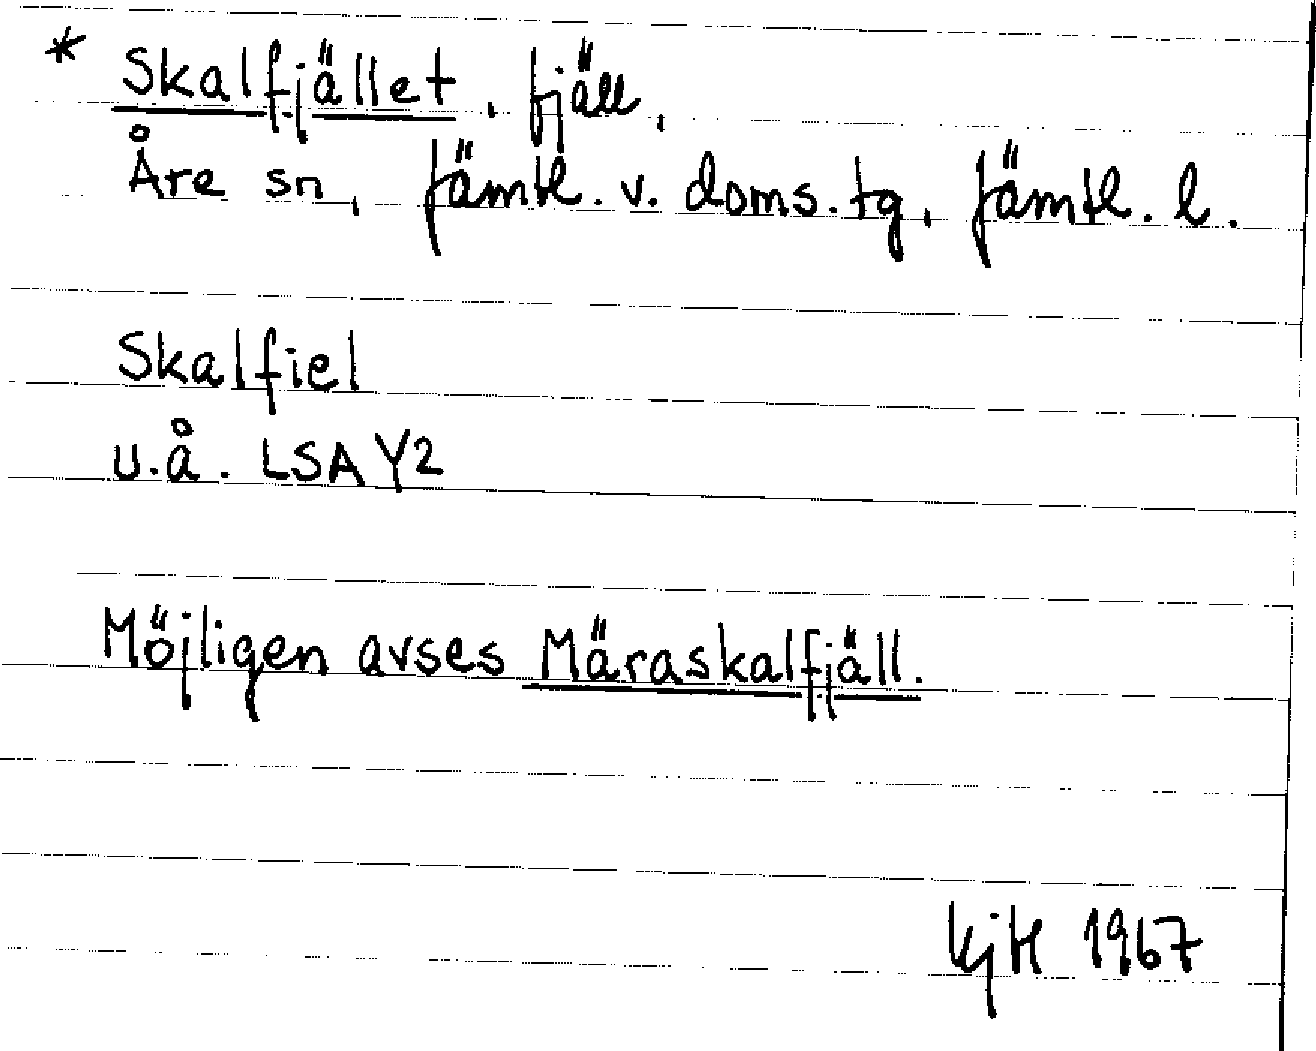 * Skalfjället, fjäll,
Åre sn, Jämtl. v. doms. tg, Jämtl. l.
Skalfiel
u.å. LSA Y2
Möjligen avses Märaskalfjäll.
KjH 1967